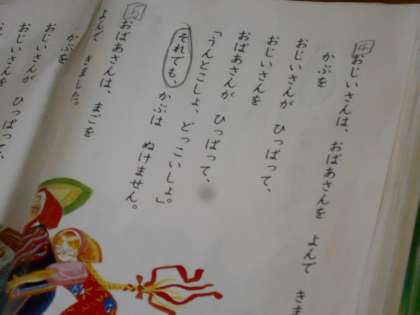 4
おじいさんは、おばあさんを よんで きま
かぶを
おじいさんが ひっぱって、
おじいさんを
おばあさんが ひっぱって、
「うんとこしょ、どっこいしょ。」
それでも、かぶは ぬけません。
5
おばあさんは、まごを
よんで きました。
かぶを
おじいさんが
おじいさんを
ひっぱって、